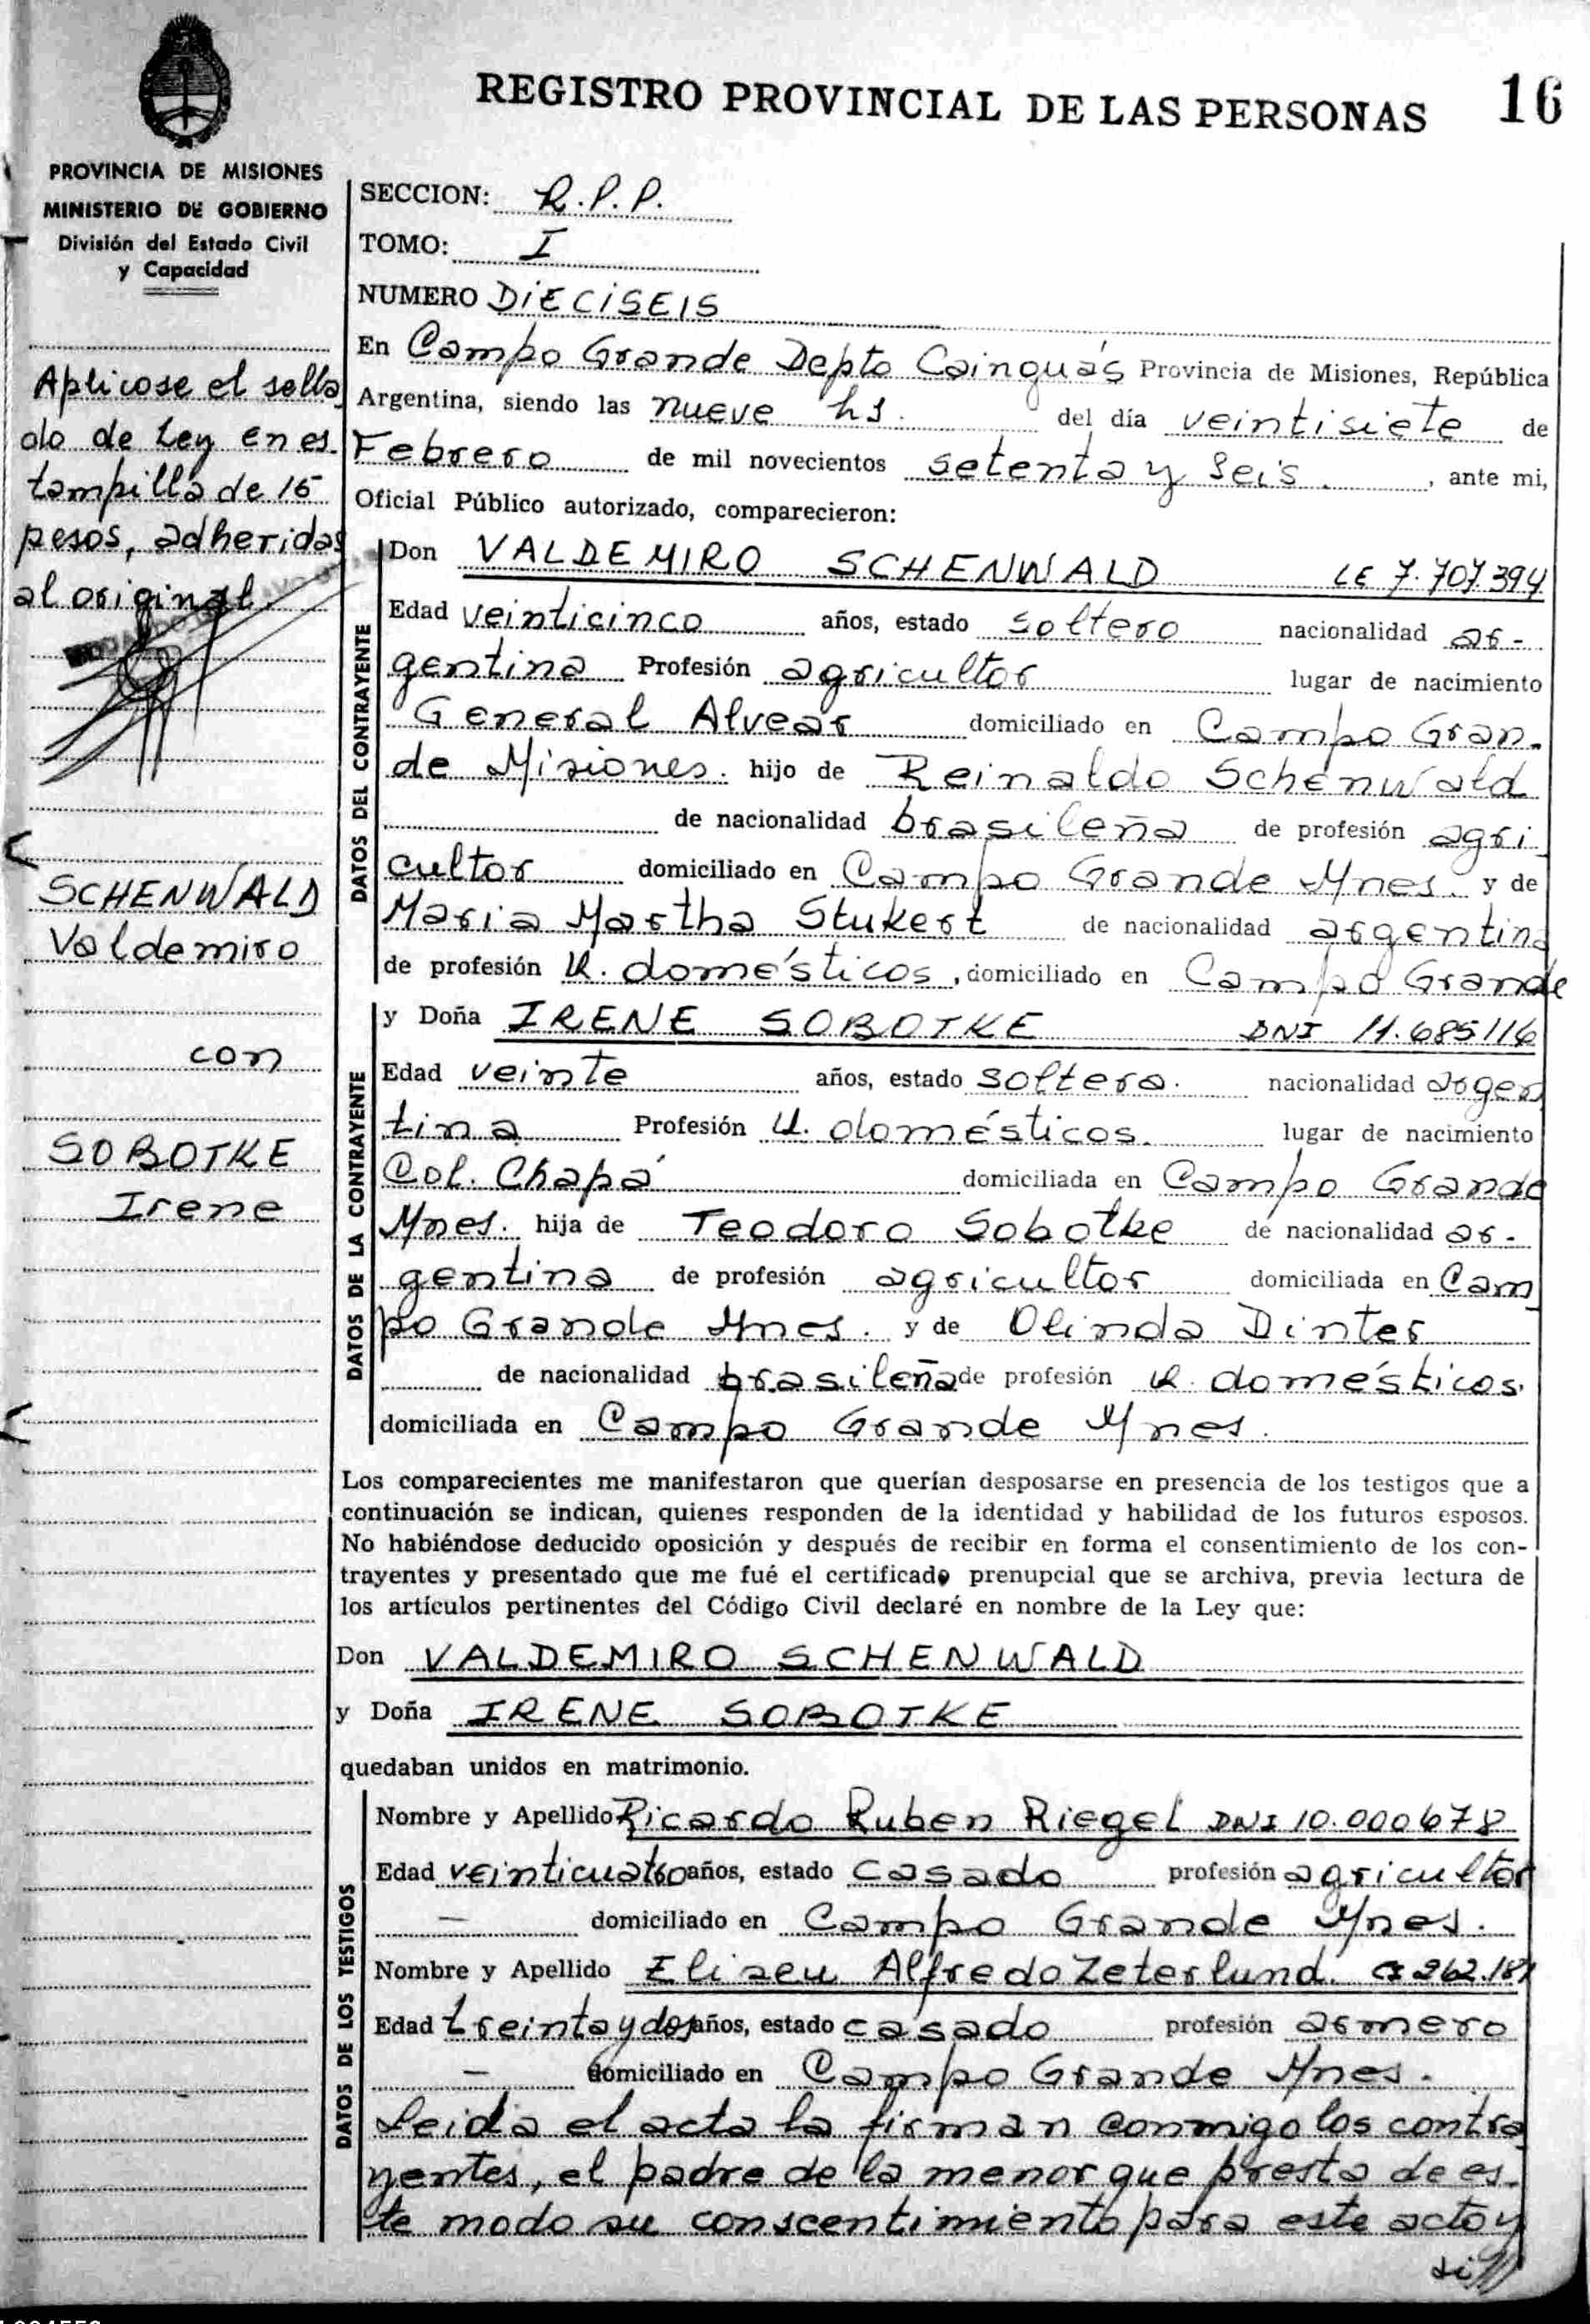 REGISTRO PROVINCIAL DE LAS PERSONAS 16
PROVINCIA DE MISIONES
MINISTERIO DE GOBIERNO
División del Estado Civil
y Capacidad
Aplicose el sella
do de Ley en es-
tampilla de 15
pesos, adheridas
al original.
SCHENWALD
Valdemiro
con
SOBOTKE
Irene
SECCION: R.P.P.
TOMO: I
NUMERO DIECISEIS
En Campo Grande Depto Cainguás Provincia de Misiones, República
Argentina, siendo las nueve hs. del día veintisiete de
Febrero de mil novecientos setenta y seis. , ante mi,
Oficial Público autorizado, comparecieron:
DATOS DEL CONTRAYENTE
Don VALDEMIRO SCHENWALD LE 7.707.394
Edad veinticinco años, estado soltero nacionalidad ar-
gentina Profesión agricultor lugar de nacimiento
General Alvear domiciliado en Campo Gran-
de Misiones. hijo de Reinaldo Schenwald
de nacionalidad brasileña de profesión agri
cultor domiciliado en Campo Grande Mnes. y de
Maria Martha Stukert de nacionalidad argentina
de profesión Q. domésticos, domiciliado en Campo Grande
DATOS DE LA CONTRAYENTE
y Doña IRENE SOBOTKE DNI 11.685116
Edad veinte años, estado soltera. nacionalidad argen
tina Profesión Q. domésticos. lugar de nacimiento
Col. Chapá domiciliada en Campo Grande
Mnes. hija de Teodoro Sobotke de nacionalidad ar-
gentina de profesión agricultor domiciliada en Cam
po Grande Mnes. y de Olinda Dinter
de nacionalidad brasileña de profesión Q. domésticos.
domiciliada en Campo Grande Mnes.
Los comparecientes me manifestaron que querían desposarse en presencia de los testigos que a
continuación se indican, quienes responden de la identidad y habilidad de los futuros esposos.
No habiéndose deducido oposición y después de recibir en forma el consentimiento de los con-
trayentes y presentado que me fué el certificado prenupcial que se archiva, previa lectura de
los artículos pertinentes del Código Civil declaré en nombre de la Ley que:
Don VALDEMIRO SCHENWALD
y Doña IRENE SOBOTKE
quedaban unidos en matrimonio.
DATOS DE LOS TESTIGOS
Nombre y Apellido Ricardo Ruben Riegel DNI 10.000678
Edad veinticuatro años, estado casado profesión agricultor
— domiciliado en Campo Grande Mnes.
Nombre y Apellido Eliseu Alfredo Zeterlund. CI 262.181
Edad treinta y dos años, estado casado profesión armero
— domiciliado en Campo Grande Mnes.
Leida el acta la firman conmigo los contra
yentes, el padre de la menor que presta de es-
te modo su conscentimiento para este acto y